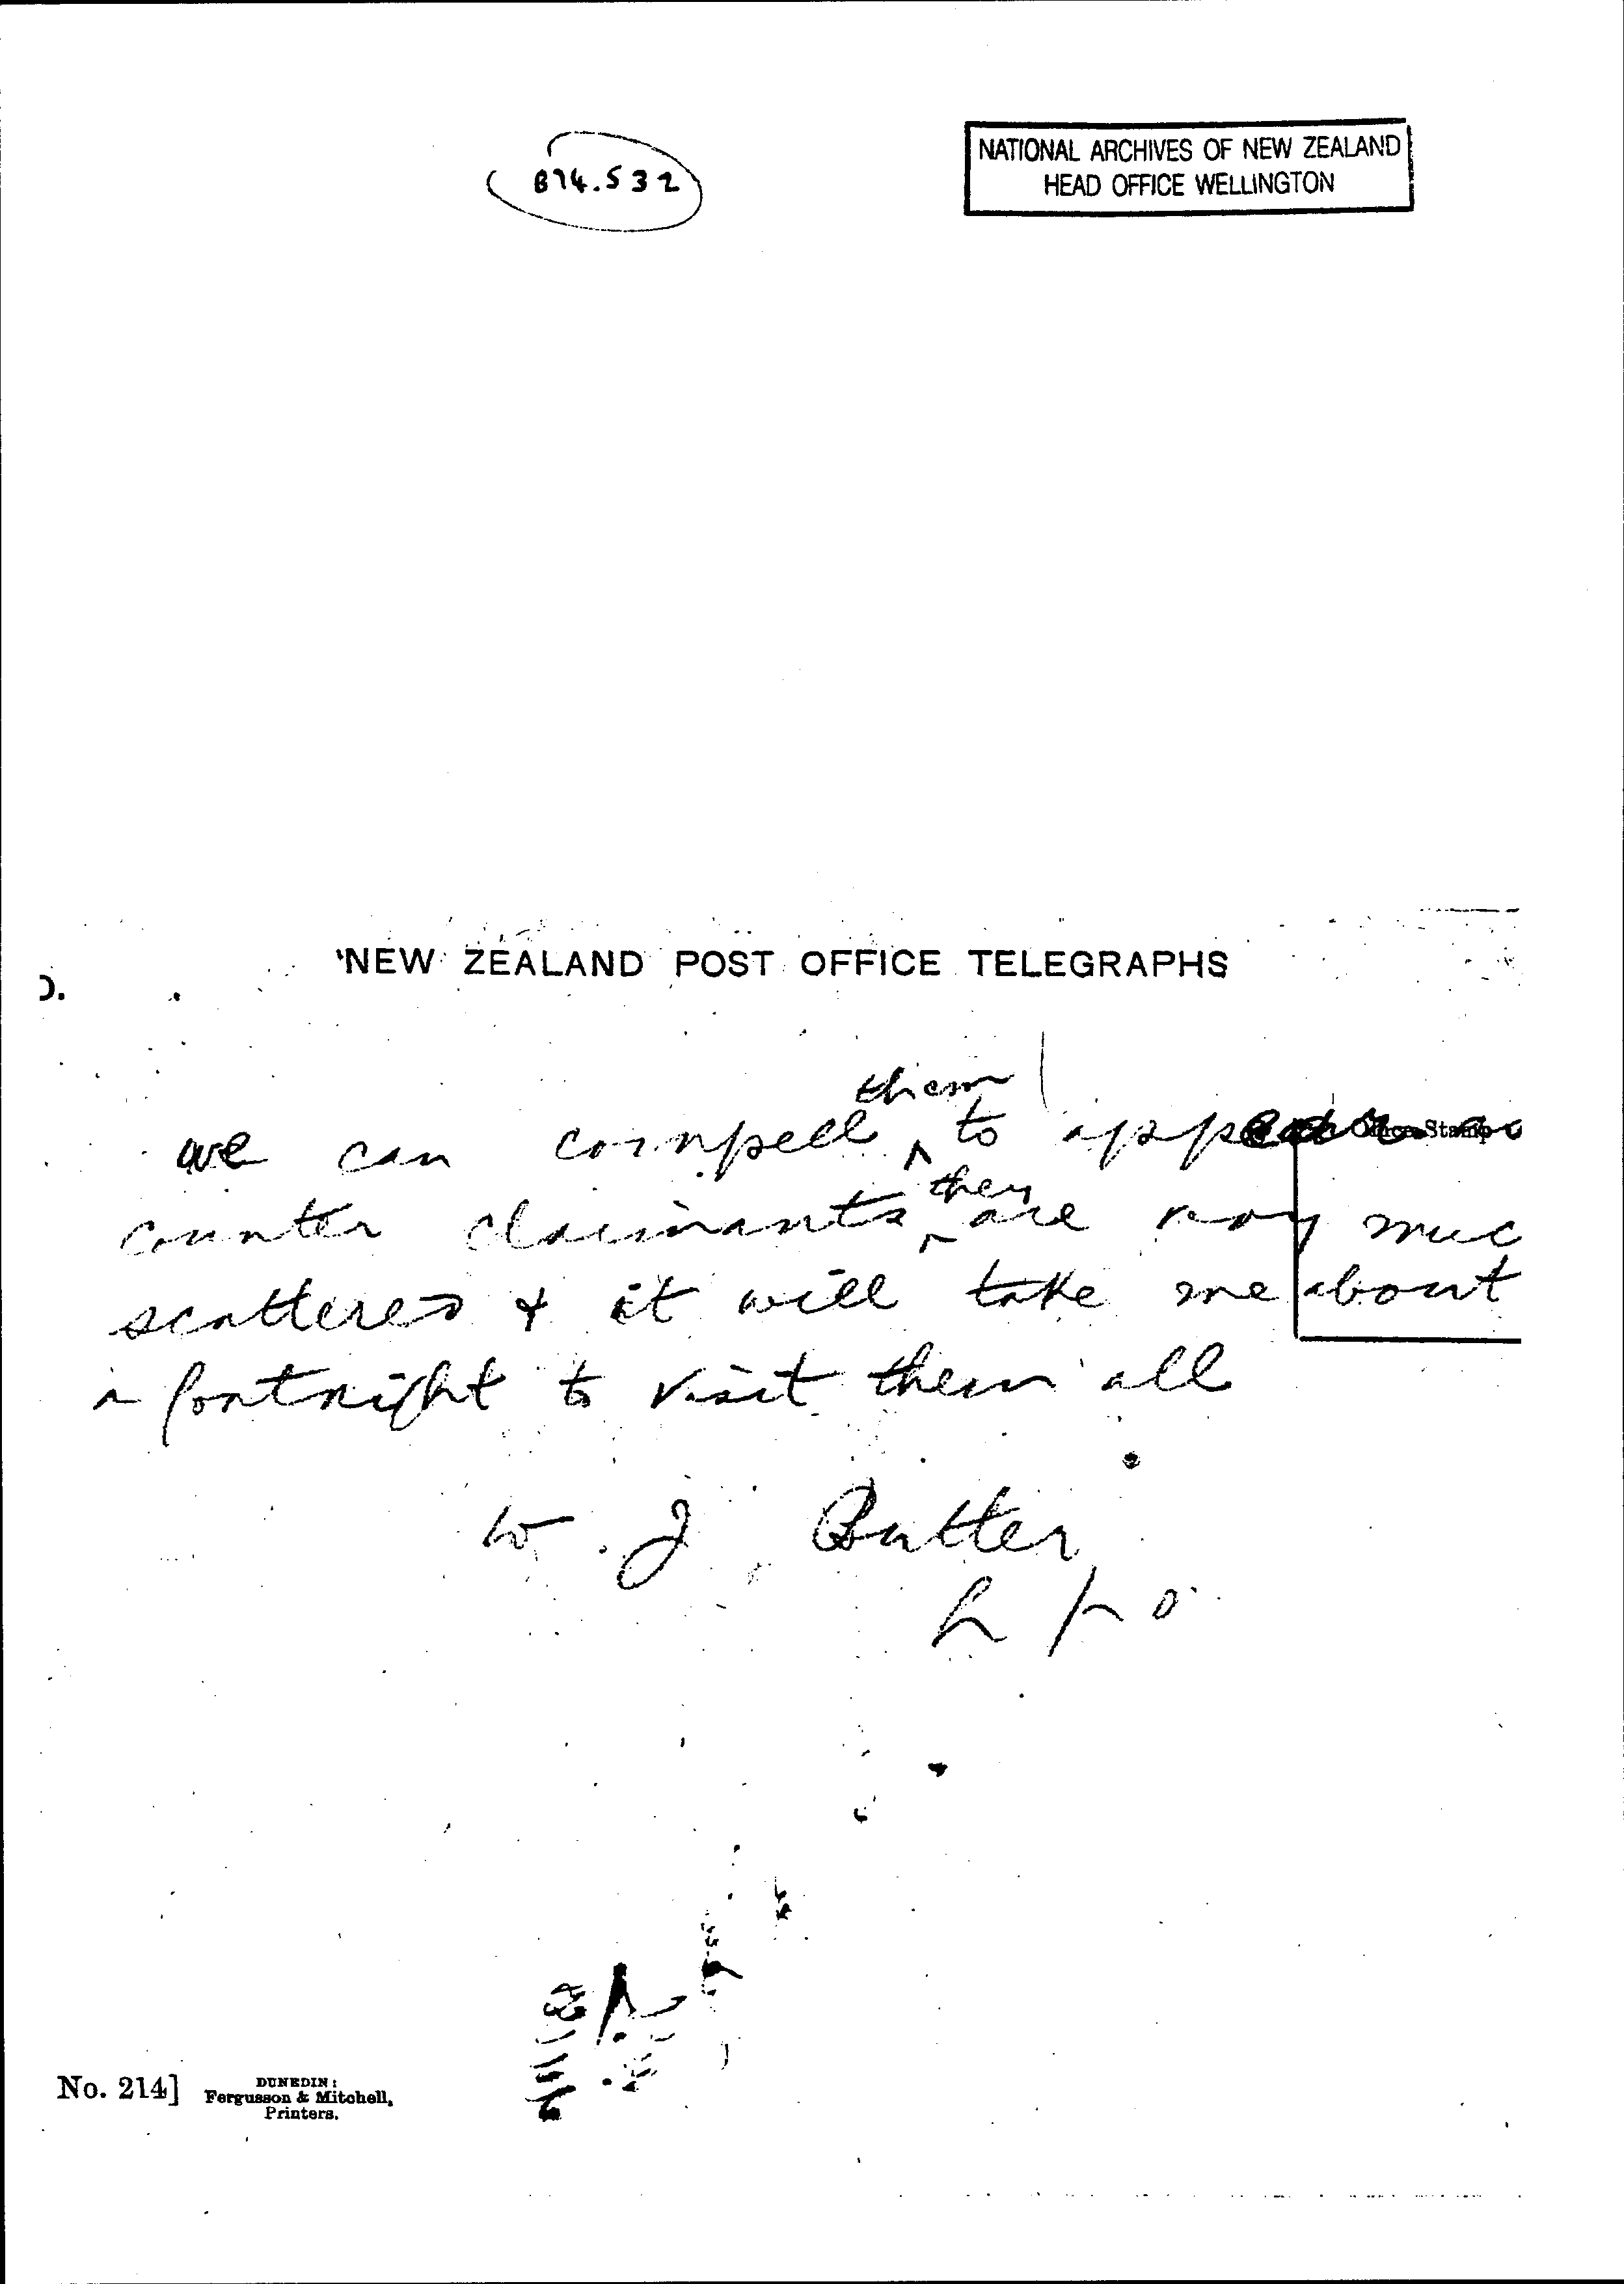 874.532
NATIONAL ARCHIVES OF NEW ZEALAND
HEAD OFFICE WELLINGTON
NEW ZEALAND POST OFFICE TELEGRAPHS
Office Stamp
them
we can compell ^ to appear as
they
counter claimants ^ are very muc
scattered & it will take me about
a fortnight to visit them all
W. J. Butler
L P O
No. 214]
DUNEDIN:
Fergusson & Mitchell,
Printers.